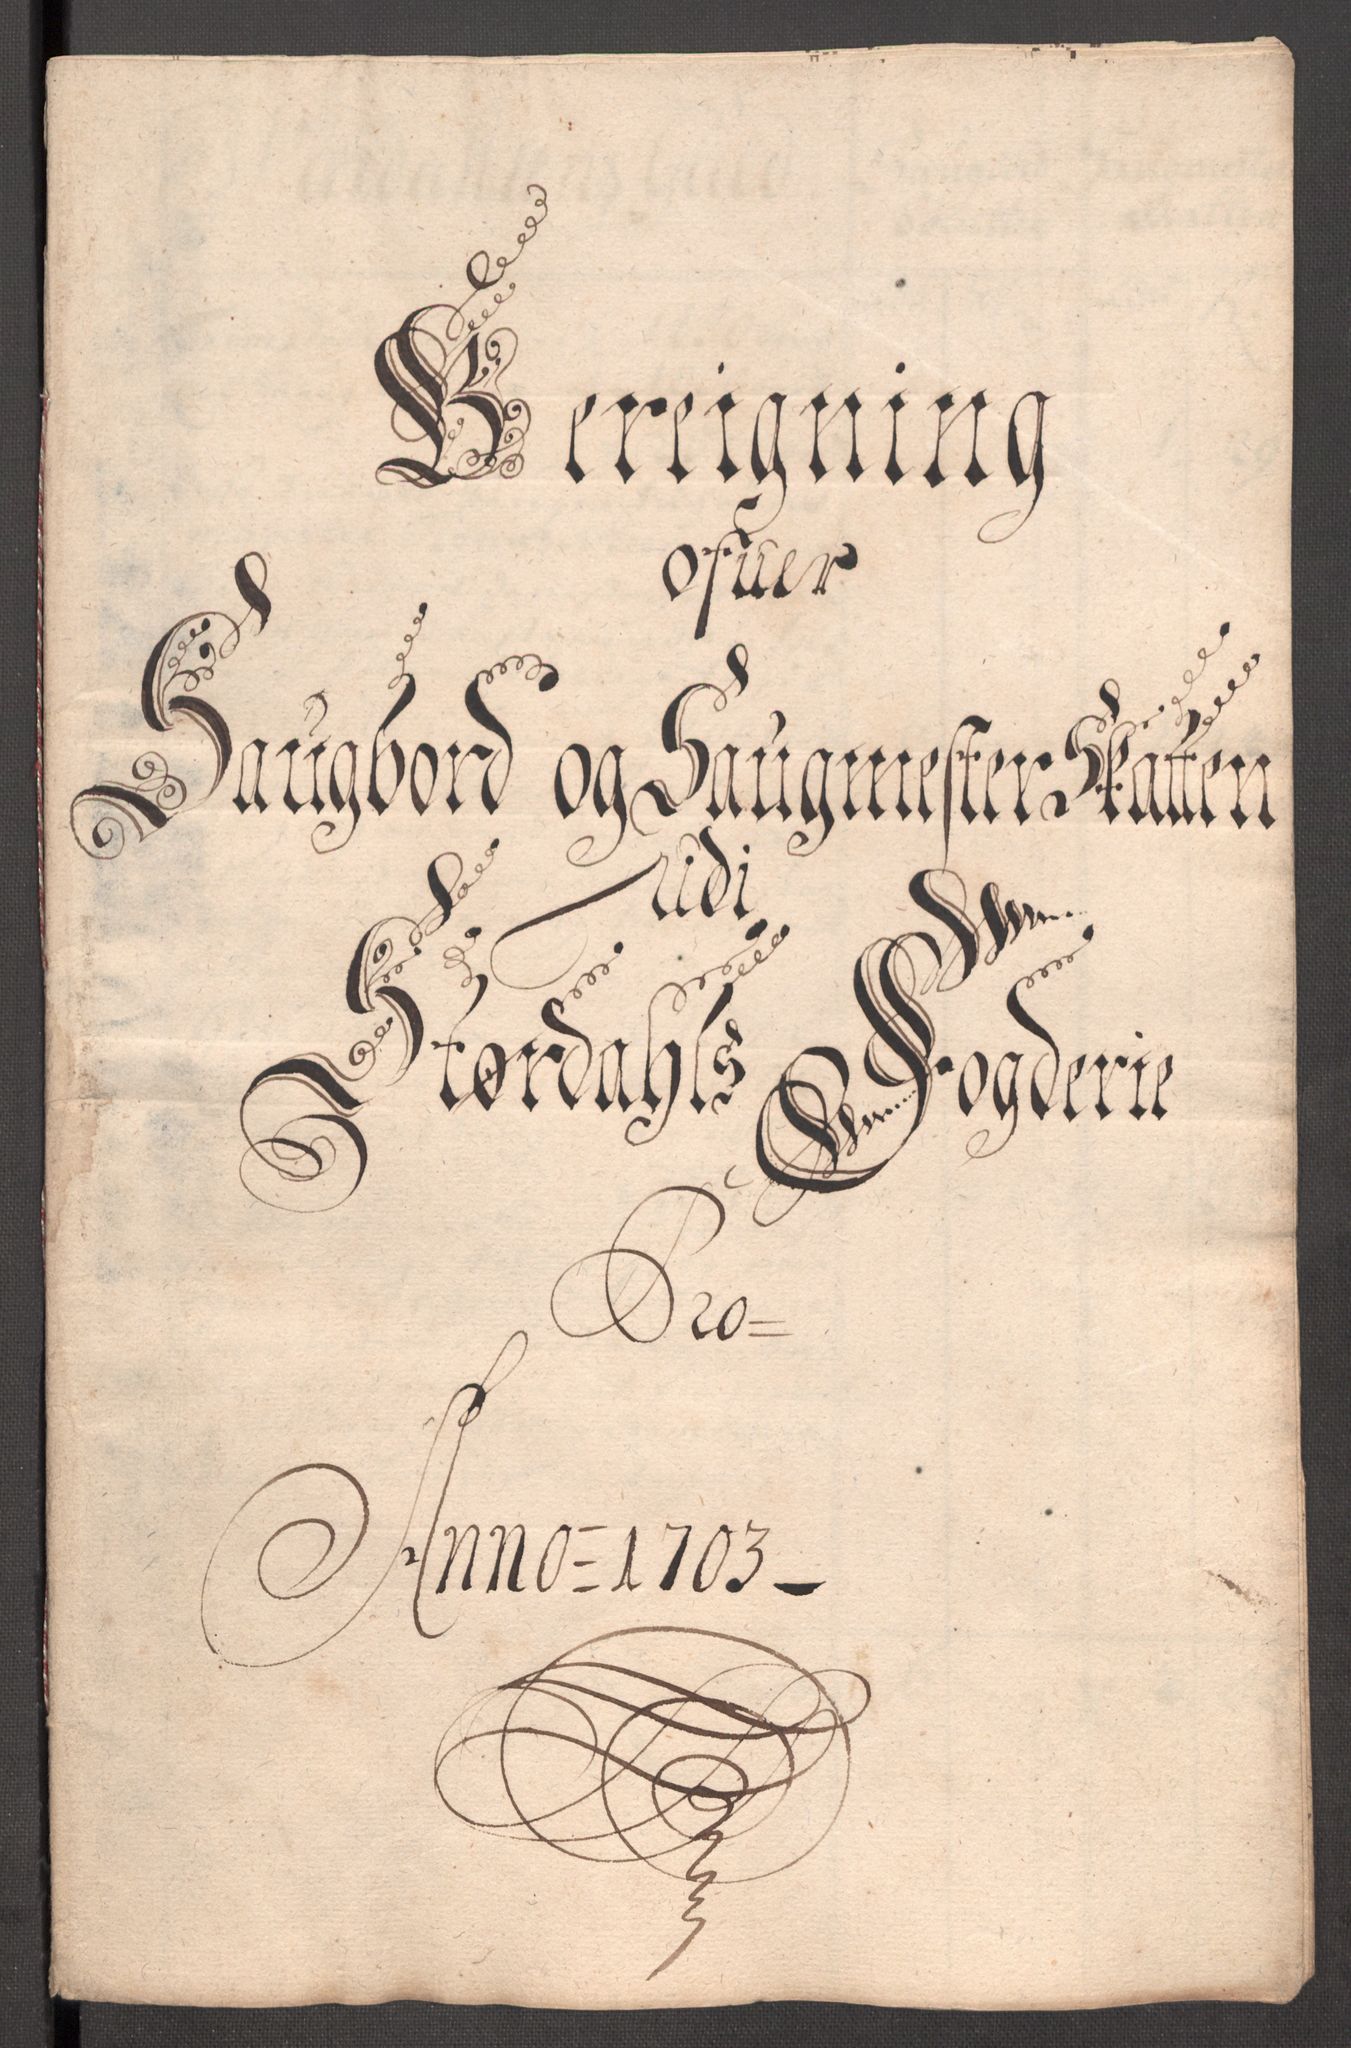 Bereigning
ofuer
Saugbord og Saugmester Skatten
udi
Størdahls Fogderie
Pro=
Anno=1703